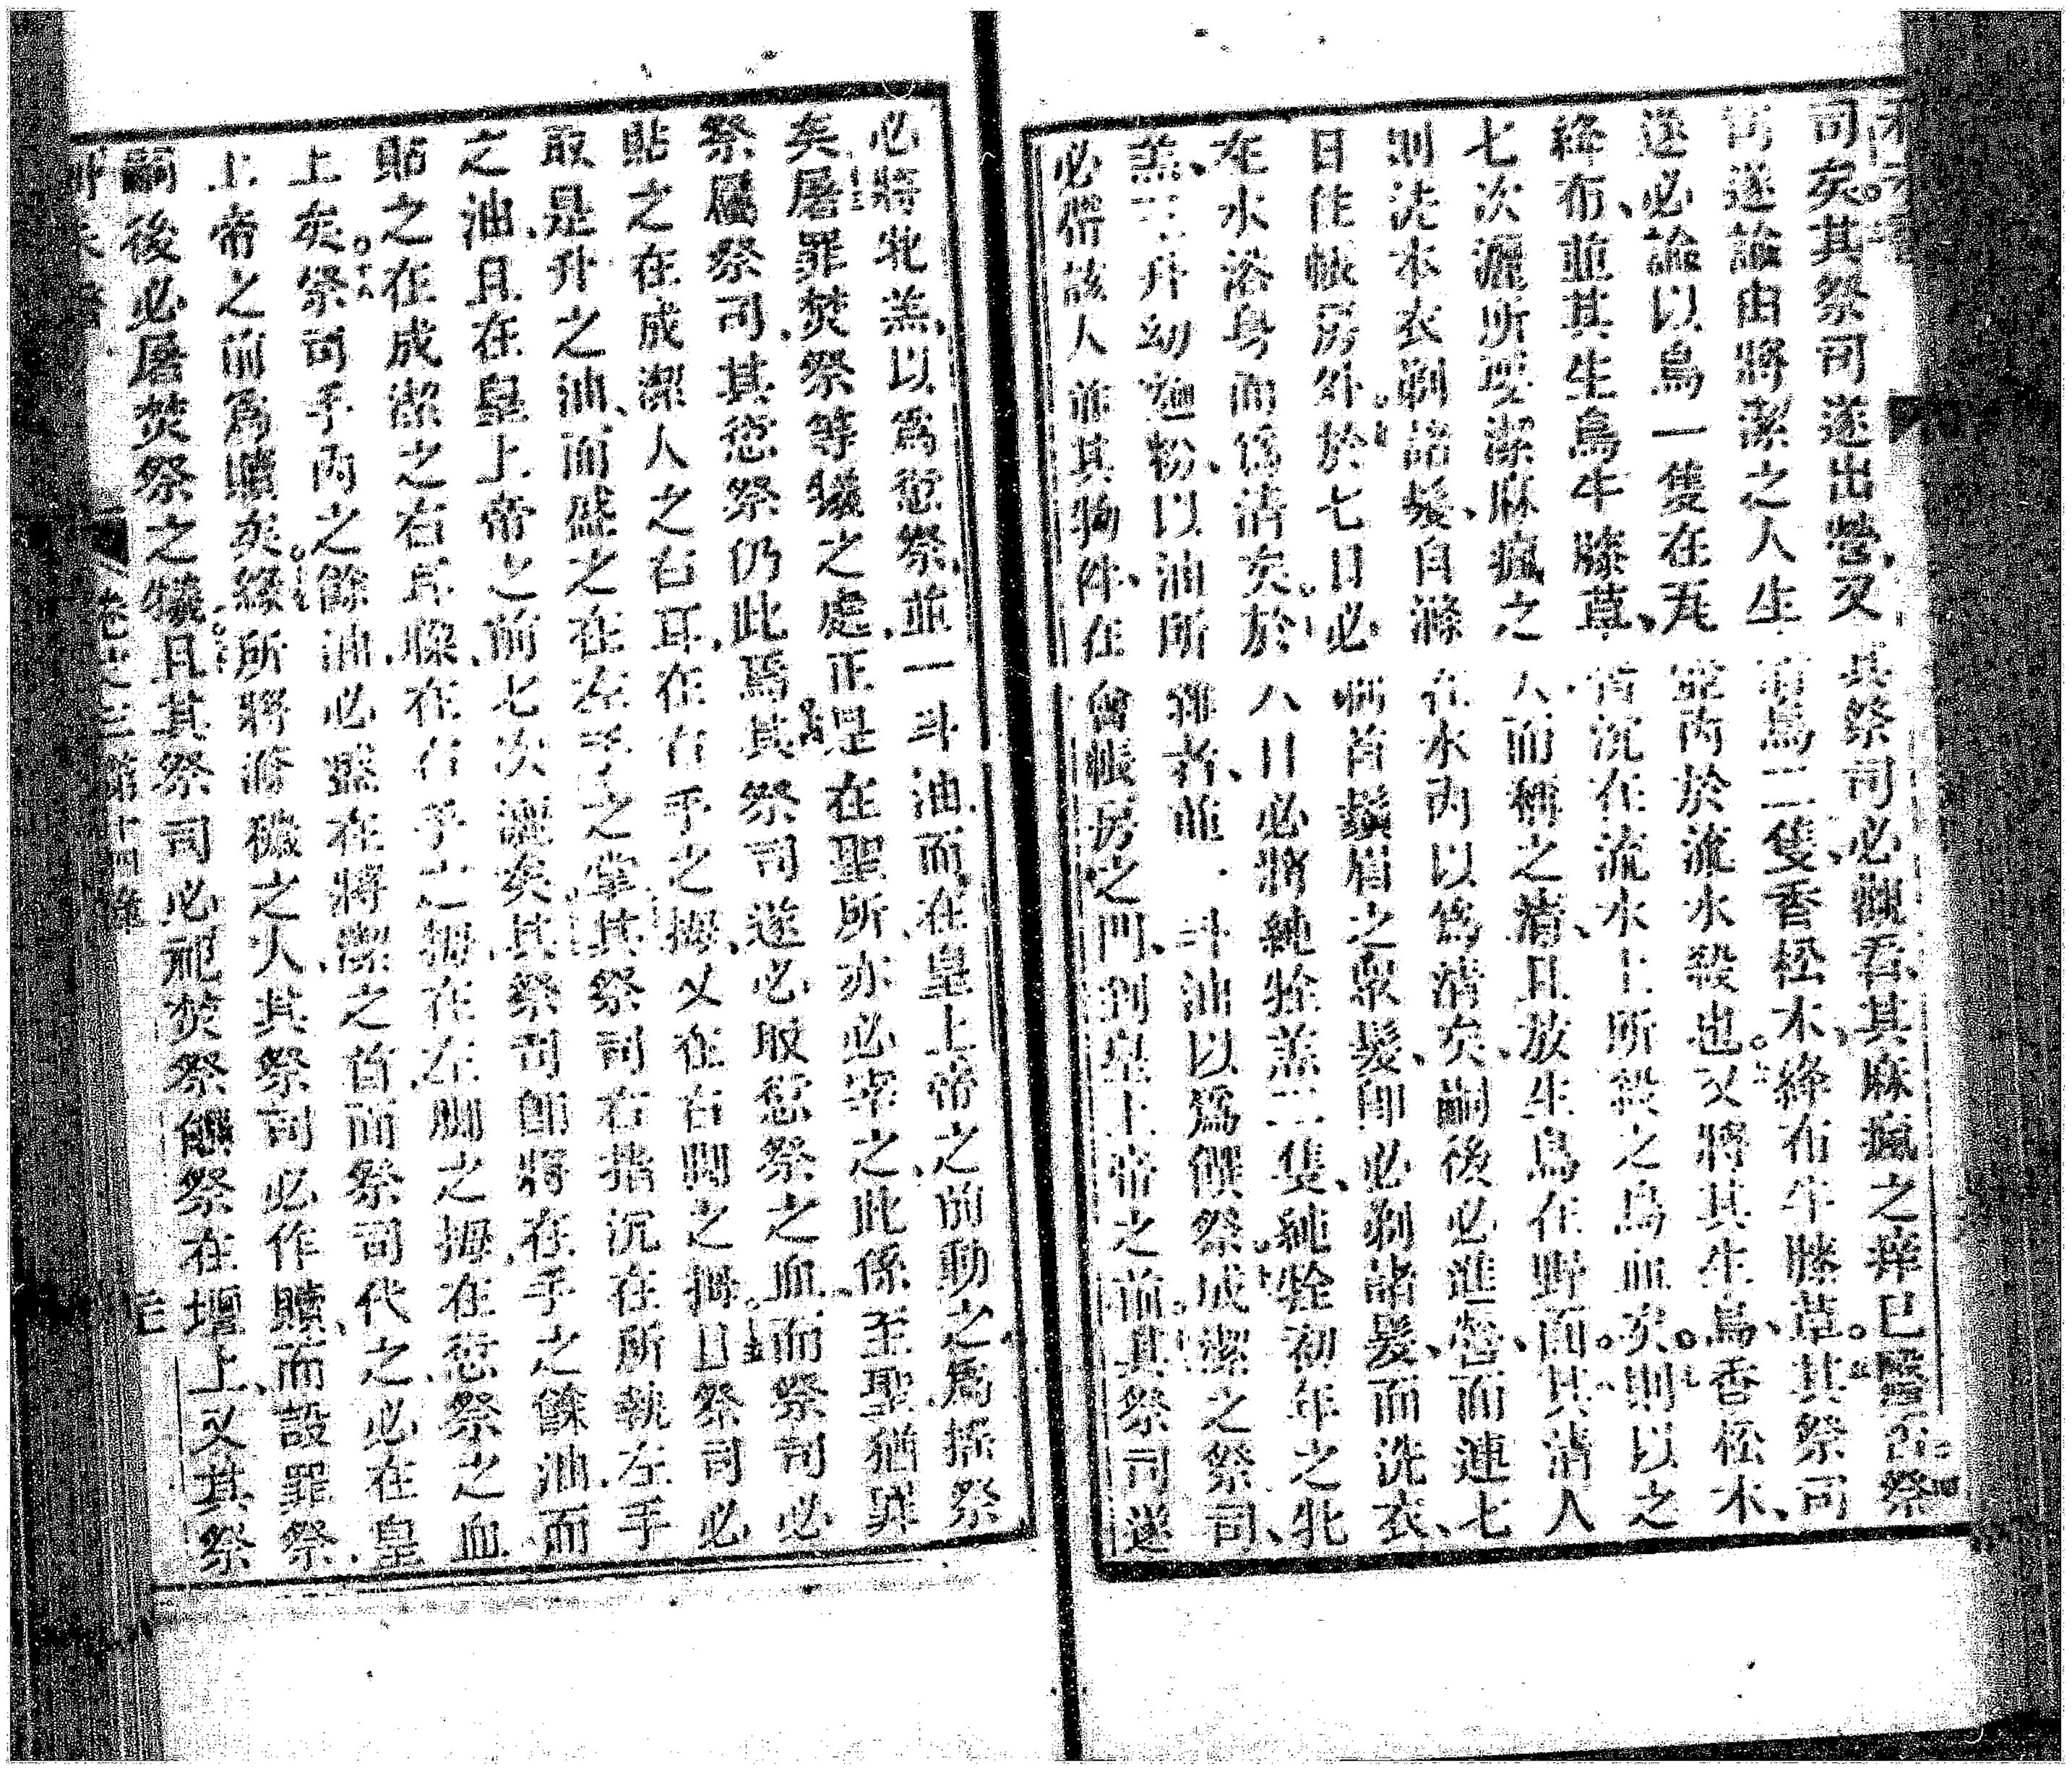 司矣。其祭司遂出營、又其祭司必觀看、其麻瘋之痒已醫否祭
司遂諭由將潔之人生而鳥二隻、香栢木、絳布牛膝草。其祭司
遂必諭以鳥一隻在瓦器內於流水殺也。又將其生鳥、香栢木、
絳布、並其生鳥牛膝草、而沉在流水上所殺之鳥血矣。則以之
七次灑所受潔麻瘋之人、而稱之清、且放生鳥在野面。其清人
則洗本衣剃諸髮、自滌在水內以爲清矣、嗣後必進營而連七
日住帳房外。於七日必剃首鬚眉之衆髮、即必剃諸髮、而洗衣、
在水浴身而爲清矣。於八日必將純牷羔二隻、純牷初年之牝
羔、三升幼麵粉、以油所雜者、並一斗油以爲饌祭。成潔之祭司、
必帶該人並其物件、在會帳房之門、到皇上帝之前。其祭司遂
必將牝羔、以爲愆祭、並一斗油、而在皇上帝之前動之爲搖祭
矣。屠罪焚祭等犧之處、正是在聖所、亦必宰之、此係至聖、猶罪
祭屬祭司、其愆祭仍此焉。其祭司遂必取愆祭之血、而祭司必
貼之在成潔人之右耳、在右手之拇、又在右脚之拇。且祭司必
取是升之油、而盛之在左手之掌。其祭司右指沉在所執左手
之油、且在皇上帝之前七次灑矣。其祭司即將在手之餘油、而
貼之在成潔之右耳朶、在右手之拇、在左脚之拇、在愆祭之血
上矣。祭司手內之餘油、必點在將潔之首、而祭司代之、必在皇
上帝之前爲贖矣。緣所將滌穢之人、其祭司必作贖、而設罪祭、
嗣後必屠焚祭之犧。且其祭司必祀焚祭饌祭在壇上、又其祭
卷之三第十四章